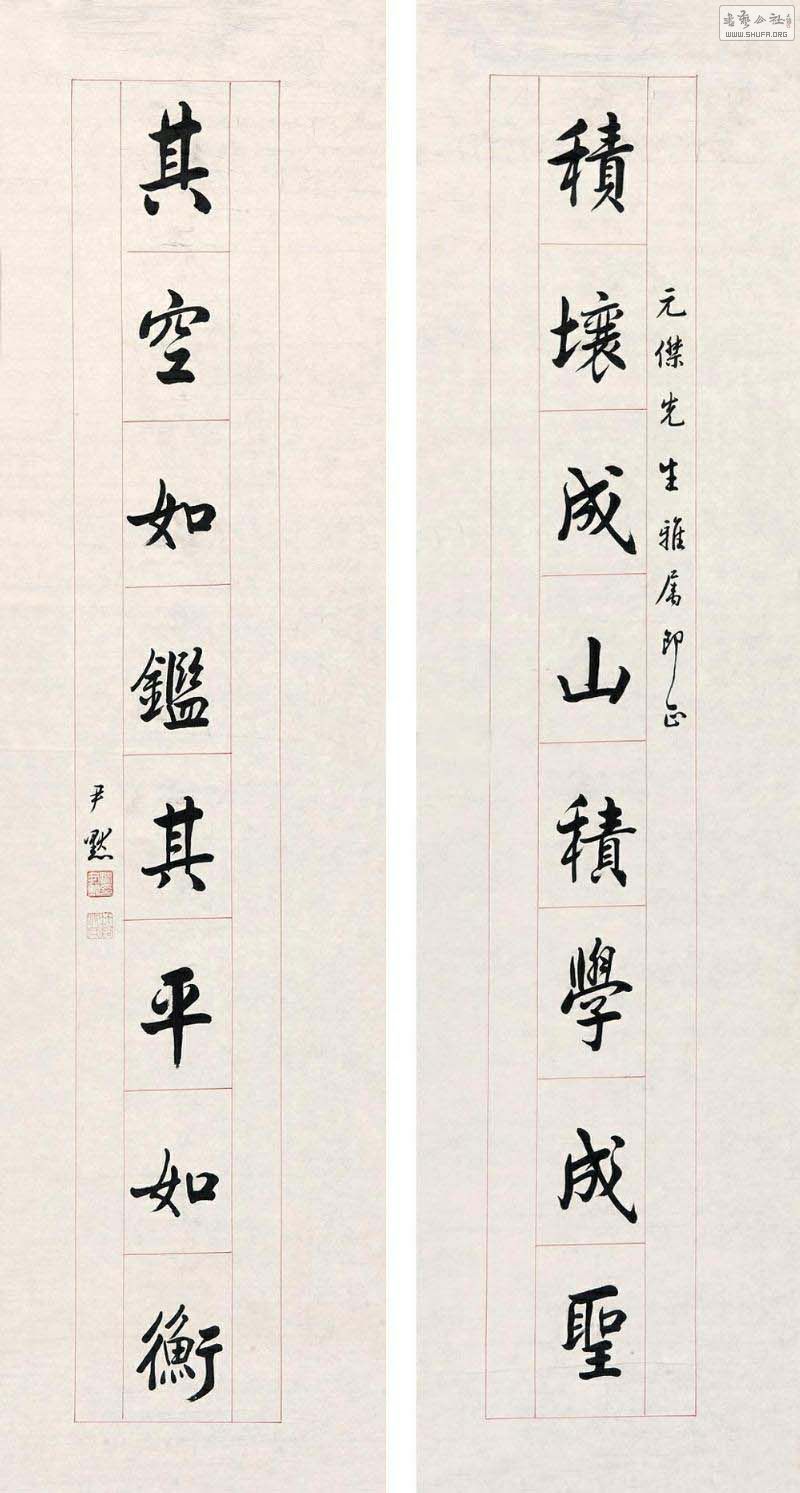 積壤成山積學成聖
元傑先生雅属即正
其空如鑑其平如衡
尹默
书艺公社
WWW.SHUFA.ORG